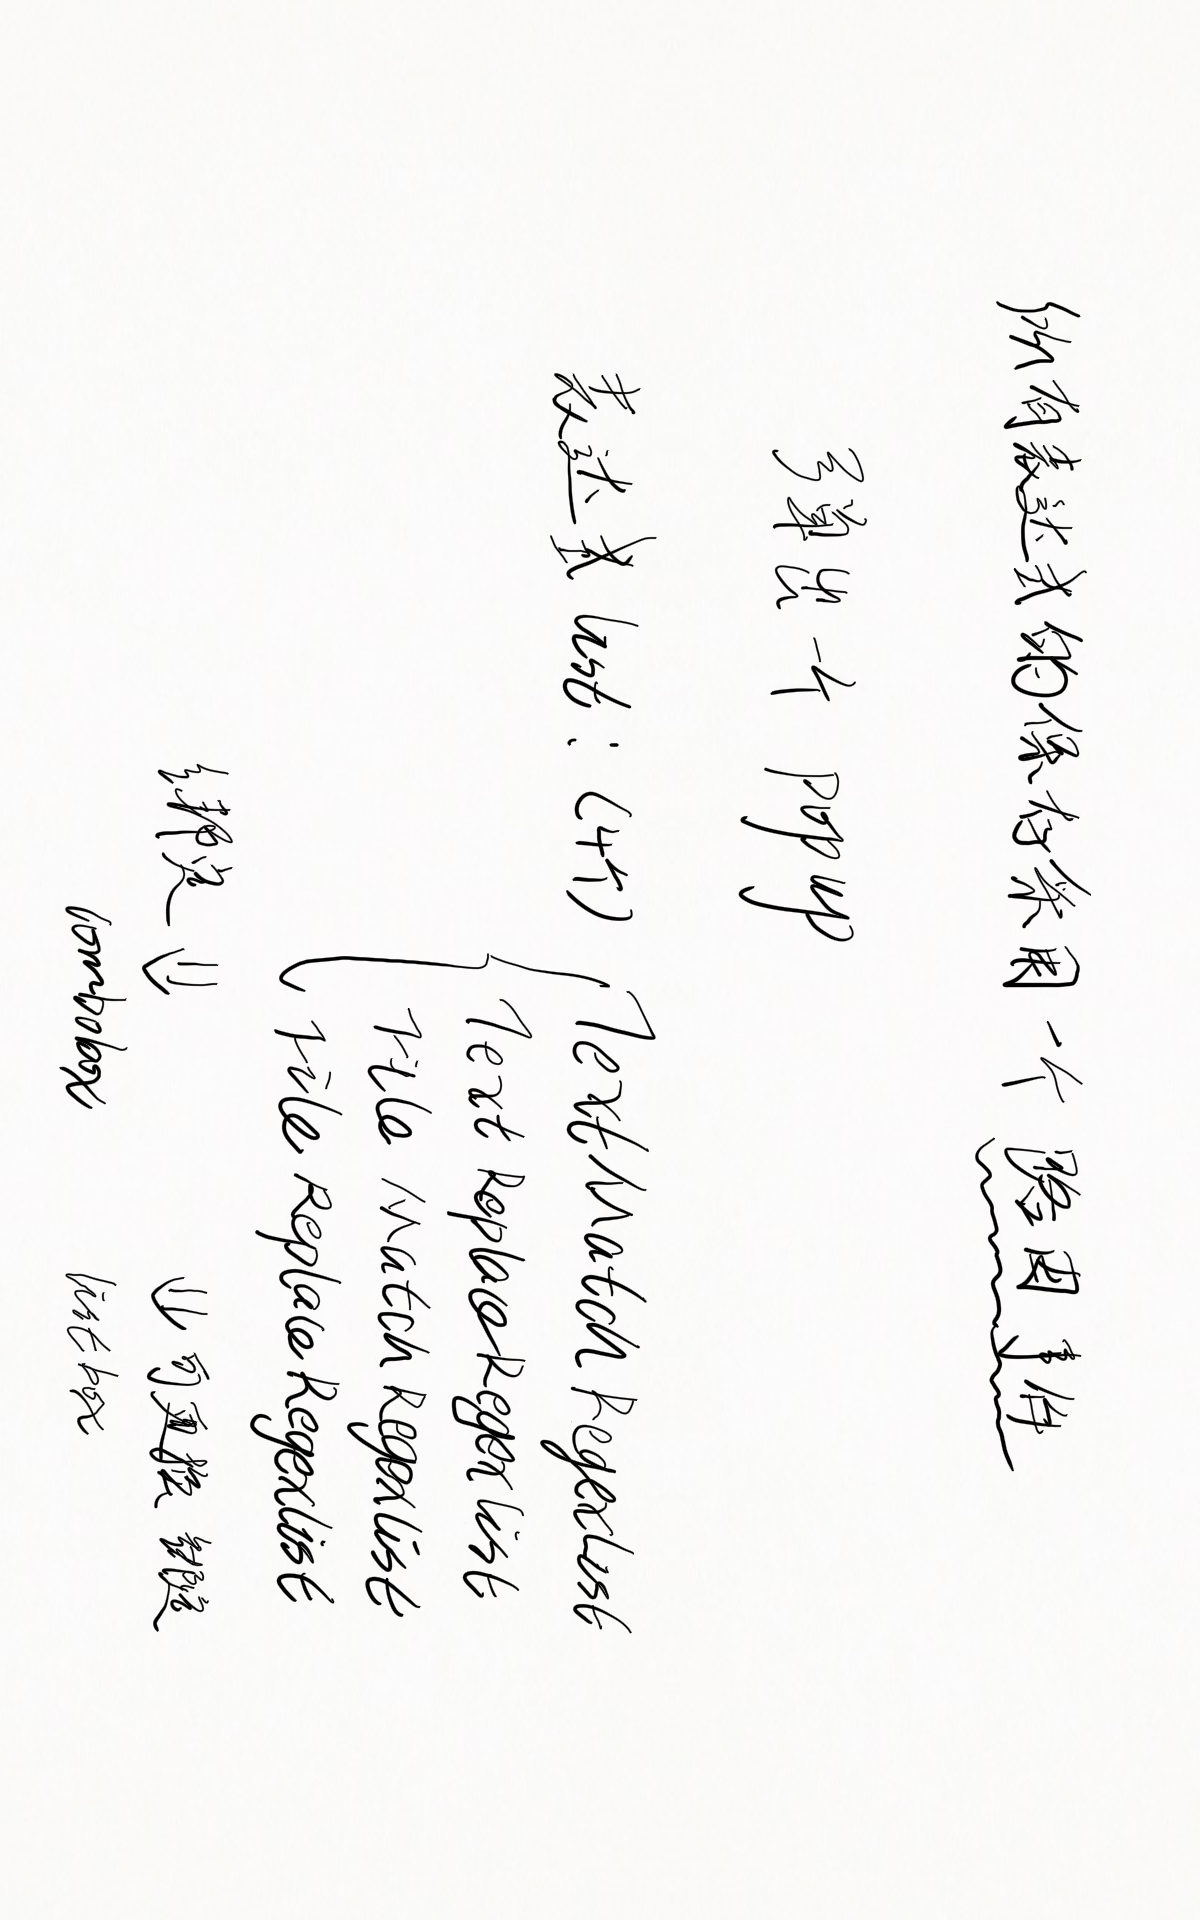 所有表达式的保存采用一个路由事件
弹出一个 popup
表达式 list : (4个)
TextMatch RegexList
Text Replace Regex list
File Match Regexlist
File Replace Regexlist
绑定 ⇓
⇓ 可
combobox
listbox